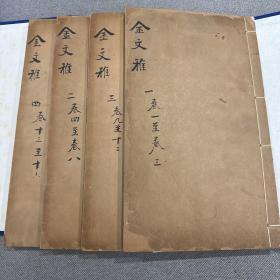 金文雅
一 卷一至卷三
金文雅
三 卷九至十二
金文雅
二 卷四至卷八
金文雅
四 卷十三至十